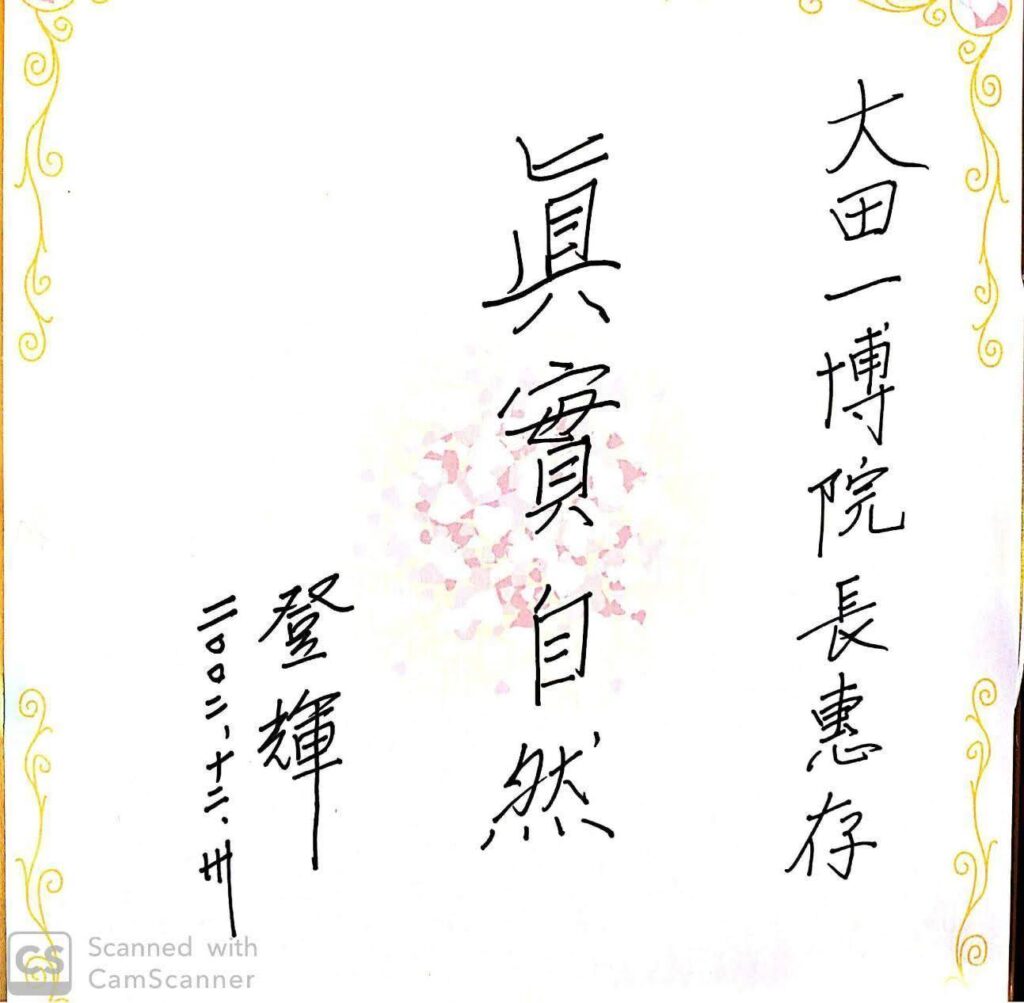 大田一博院長惠存
眞實自然
登輝
二〇〇二、十二.卅
CS Scanned with
CamScanner